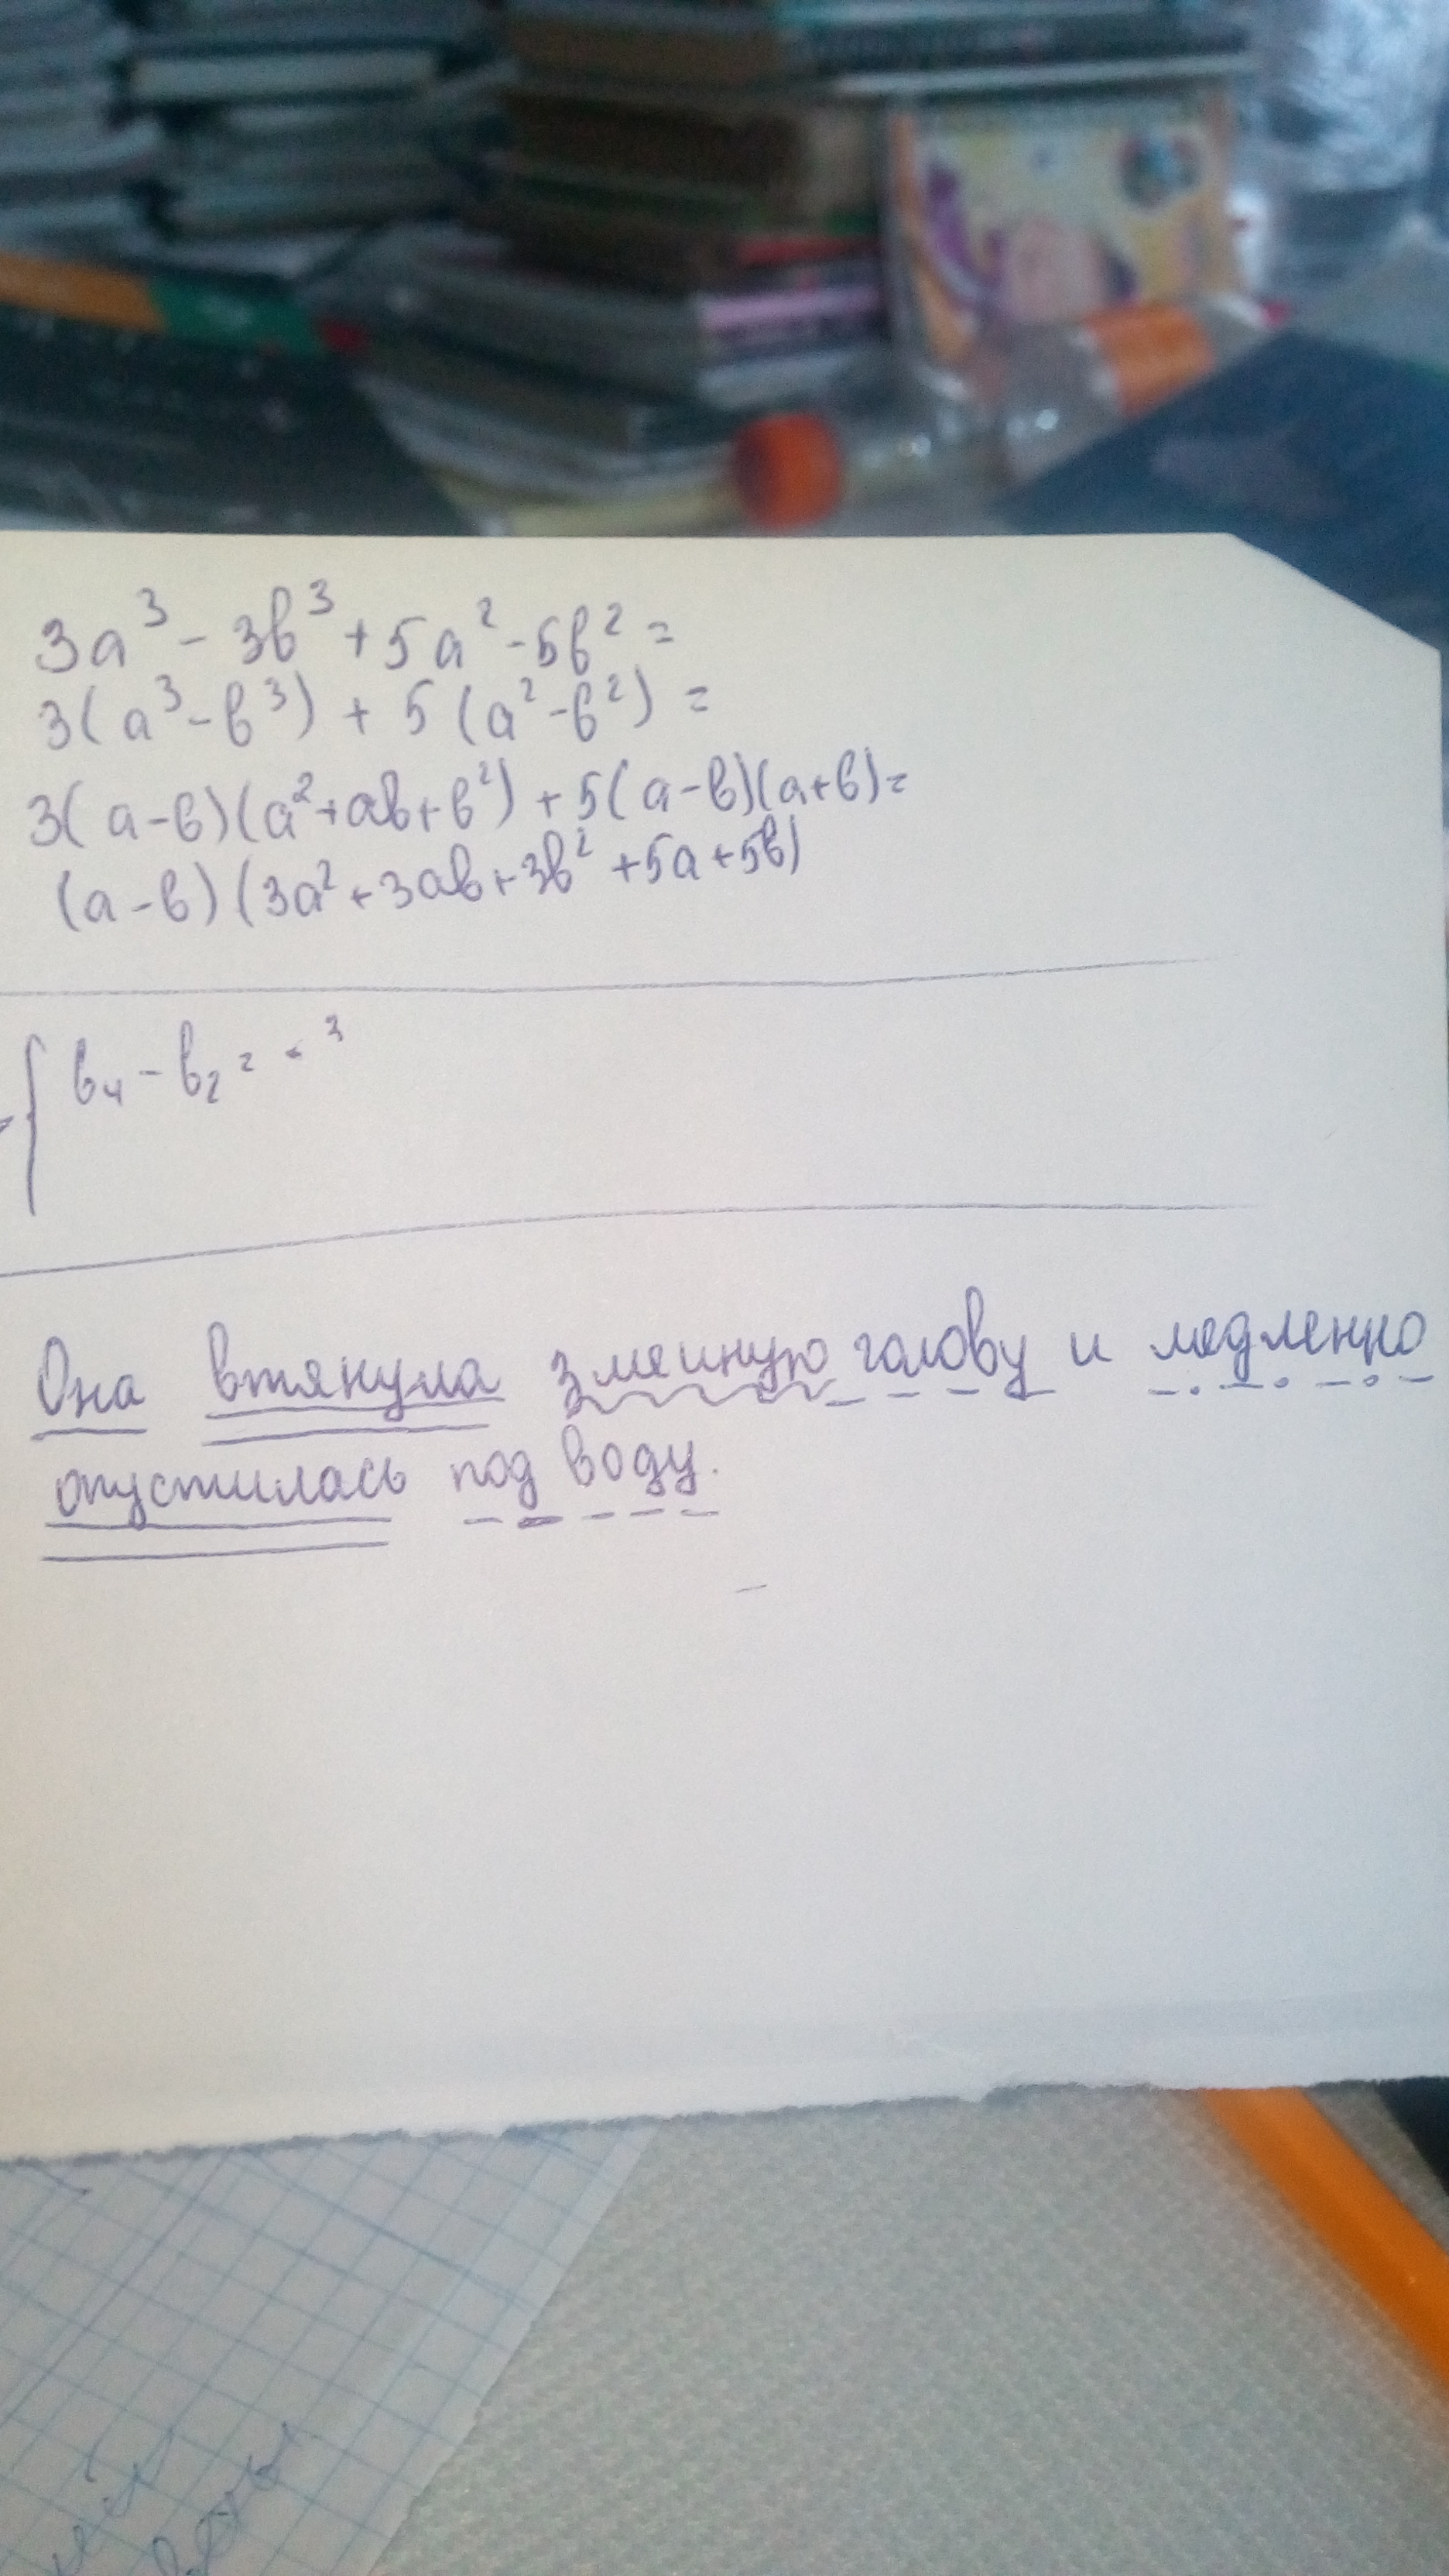 3a³ - 3b³ + 5a² - 5b² =
3(a³ - b³) + 5(a² - b²) =
3(a - b)(a² + ab + b²) + 5(a - b)(a + b) =
(a - b)(3a² + 3ab + 3b² + 5a + 5b)
{ b₄ - b₂ = - 3
Она втянула змеиную голову и медленно
опустилась под воду.